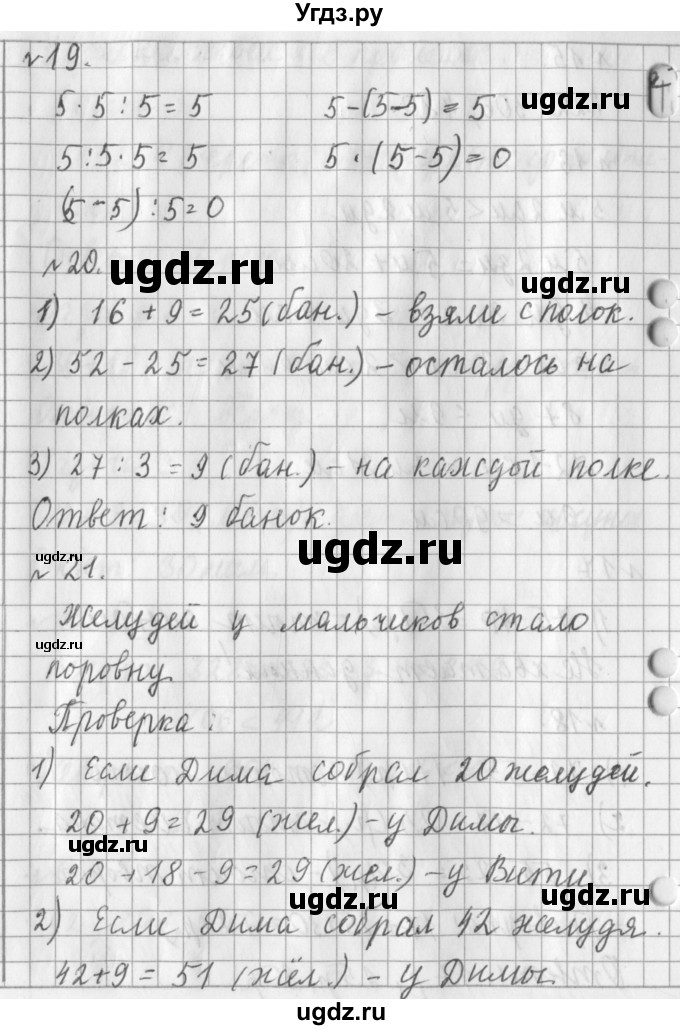 Угдз.ру
№19.
5·5:5=5 5-(5-5)=5
5:5·5=5 5·(5-5)=0
(5-5):5=0
ugdz.ru
ugdz.ru
№20.
ugdz.ru
1) 16+9=25(бан.) - взяли с полок.
2) 52-25=27(бан.) - осталось на
полках.
3) 27:3=9(бан.) - на каждой полке.
Ответ: 9 банок.
ugdz.ru
ugdz.ru
№21.
Желудей у мальчиков стало
ugdz.ru
поровну.
Проверка:
1) Если Дима собрал 20 желудей.
20+9=29(жел.) - у Димы.
ugdz.ru
20+18-9=29(жел.) - у Вити.
ugdz.ru
ugdz.ru
2) Если Дима собрал 42 желудя.
ugdz.ru
42+9=51(жёл.) - у Димы.
ugdz.ru